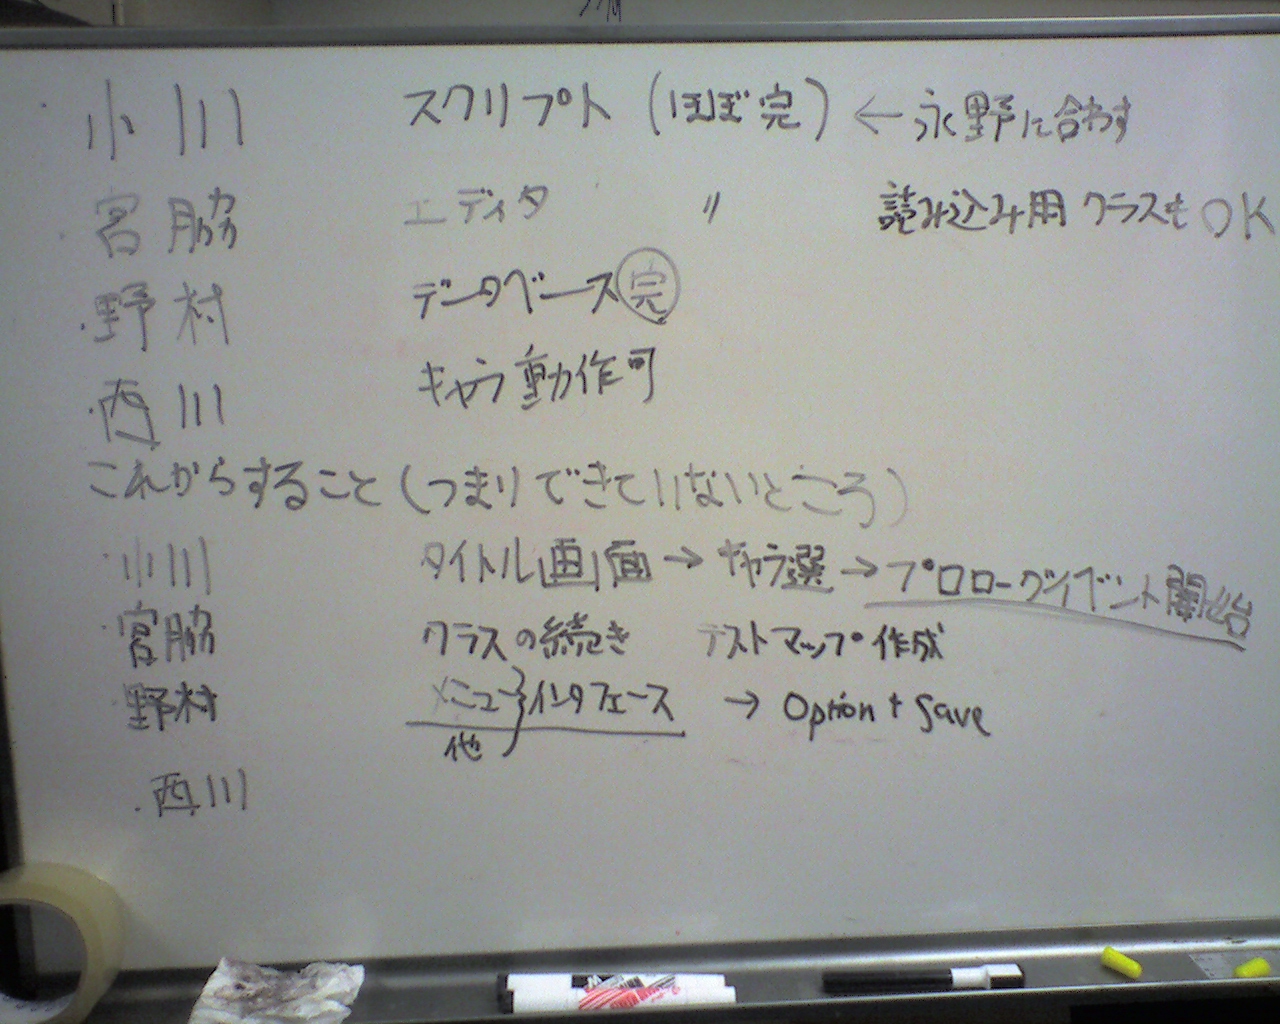 ・小川 スクリプト (ほぼ完) ← 永野に合わす
・宮脇 エディタ 〃 読み込み用クラスも OK
・野村 データベース 完
・西川 キャラ動作可
これからすること(つまりできていないところ)
・小川 タイトル画面 → キャラ選 → プロローグイベント開始
・宮脇 クラスの続き テストマップ作成
・野村 メニュー } インタフェース → Option + Save
他
・西川